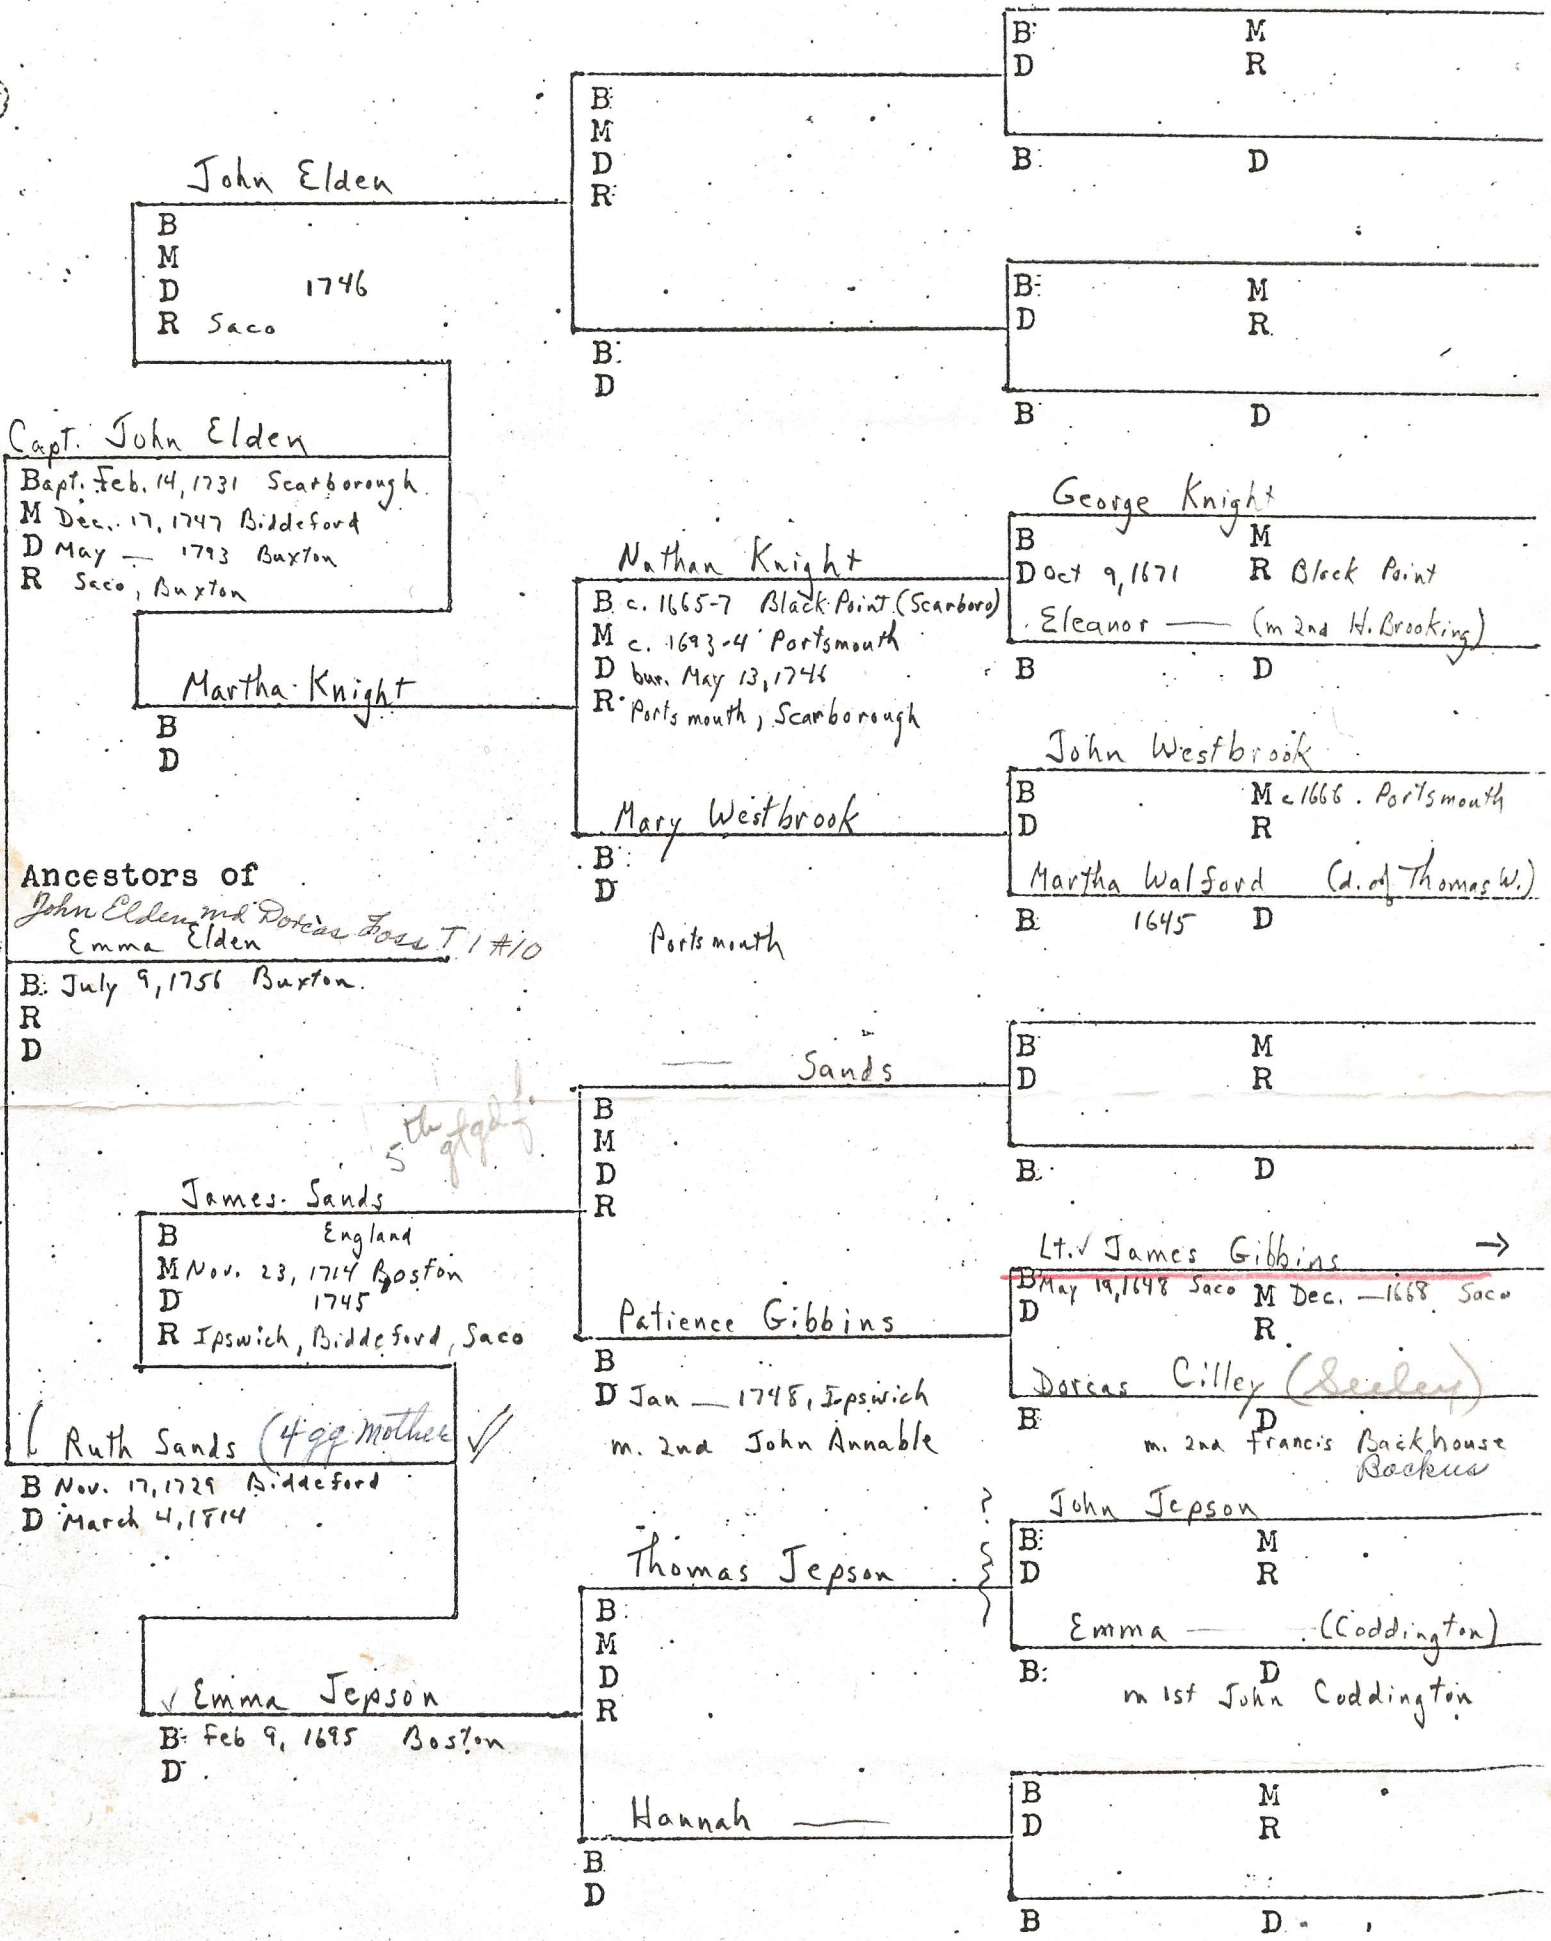 B: M
D R
B: D
B:
M
D
R:
John Elden
B
M
D 1746
R Saco
B: M
D R
B: D
B:
D
Capt. John Elden
Bapt. Feb. 14, 1731 Scarborough
M Dec. 17, 1747 Biddeford
D May — 1793 Buxton
R Saco, Buxton
George Knight
B M
D Oct 9, 1671 R Black Point
Eleanor — (m 2nd H. Brooking)
B D
Nathan Knight
B c. 1665-7 Black Point (Scarboro)
M c. 1693-4 Portsmouth
D bur. May 13, 1746
R Portsmouth, Scarborough
Martha Knight
B
D
John Westbrook
B M c 1666. Portsmouth
D R
Martha Walford (d. of Thomas W.)
B: 1645 D
Mary Westbrook
B:
D
Portsmouth
Ancestors of
John Elden md Dorcas Foss T 1 #10
Emma Elden
B: July 9, 1756 Buxton.
R
D
— Sands
B M
D R
B: D
B
M
D
R
5th gtgdf.
James Sands
B England
M Nov. 23, 1714 Boston
D 1745
R Ipswich, Biddeford, Saco
Lt. ✓ James Gibbins →
B May 19, 1648 Saco M Dec. — 1668 Saco
D R
Dorcas Cilley (Seeley)
B D
m. 2nd Francis Backhouse
Backus
Patience Gibbins
B
D Jan — 1748, Ipswich
m. 2nd John Annable
Ruth Sands (4 gg mother ✓
B Nov. 17, 1729 Biddeford
D March 4, 1814
John Jepson
?
B: M
D R
Emma — (Coddington)
B: D
m 1st John Coddington
Thomas Jepson
B:
M
D
R
✓ Emma Jepson
B: Feb 9, 1695 Boston
D
B M
D R
B D
Hannah —
B
D